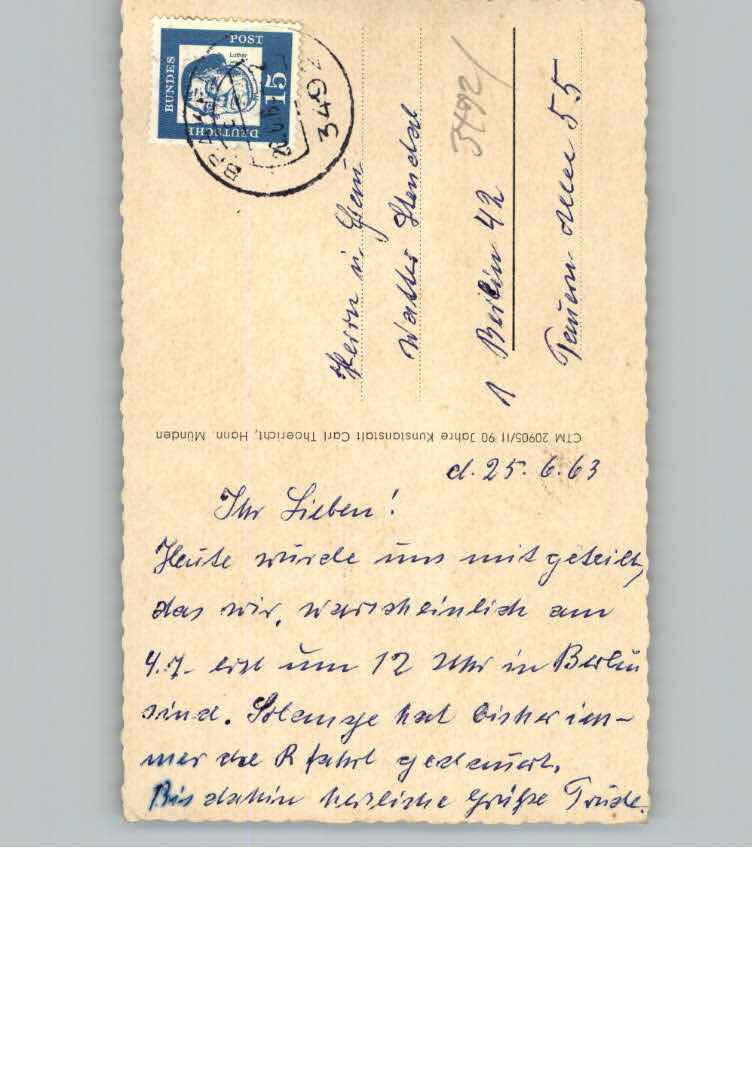 DEUTSCHE BUNDES POST
Luther
15
3492
Herrn u. Frau
Walter Stendal
3492/
1 Berlin 42
Tauern Allee 55
CTM 20905/11 90 Jahre Kunstanstalt Carl Thoericht, Hann. Münden
d. 25.6.63
Ihr Lieben!
Heute wurde uns mitgeteilt,
das wir, warscheinlich am
4.7. erst um 12 Uhr in Berlin
sind. Solange hat bisher im-
mer die R fahrt gedauert.
Bis dahin herzliche Grüße Trude.